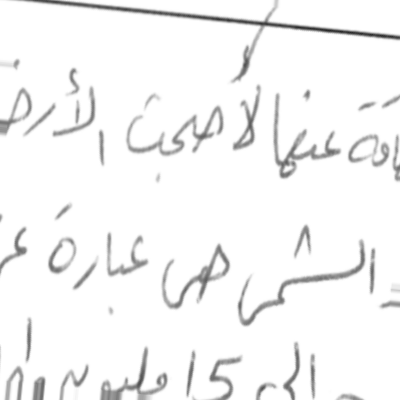 عنها لأصبحت الأرض
الشمس هي عبارة عن
إلى 15 مليون